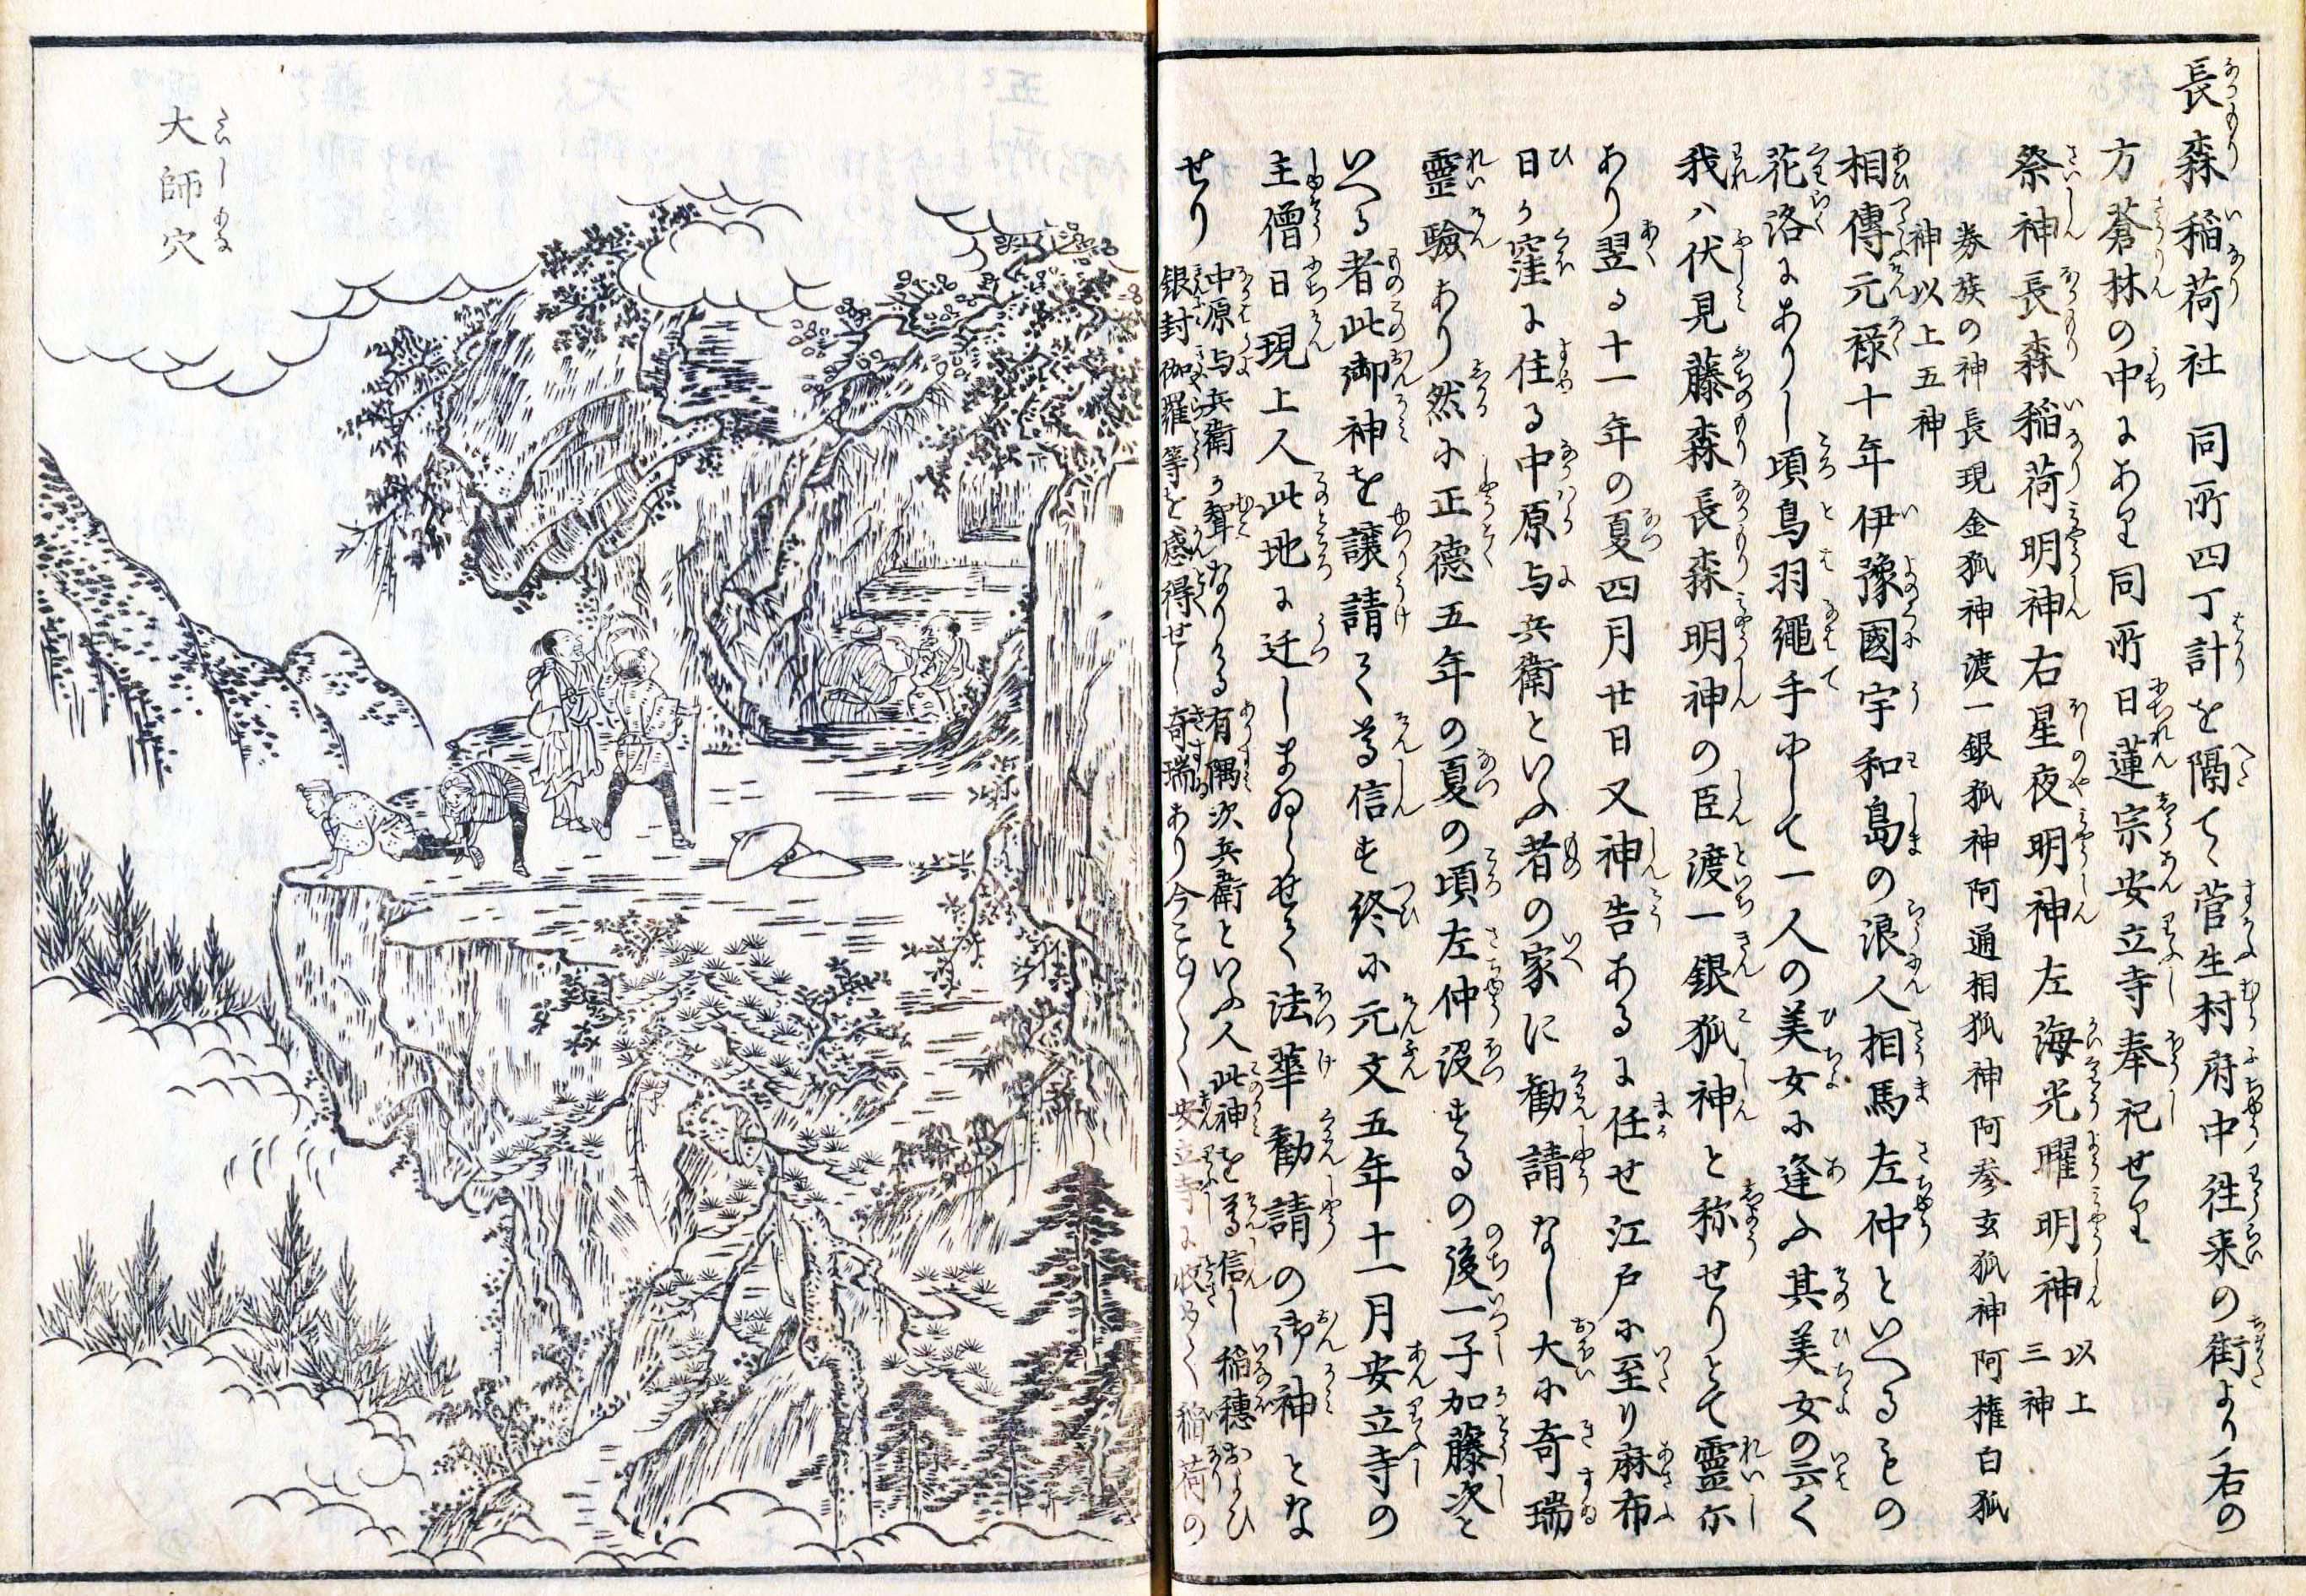 長森稲荷社 同所四丁計を隔て菅生村府中徃来の街より右の
方蒼林の中にあり同所日蓮宗安立寺奉祀せり
祭神長森稲荷明神右星夜明神左海光曜明神 以上三神
券族の神 長現金狐神 渡一銀狐神 阿通相狐神 阿参玄狐神 阿権白狐
神 以上五神
相傳元禄十年伊豫國宇和島の浪人相馬左仲といへるもの
花洛にありし頃鳥羽縄手にして一人の美女に逢ふ其美女の云く
我ハ伏見藤森長森明神の臣渡一銀狐神と称せりとて靈示
あり翌る十一年の夏四月廿日又神告あるに任せ江戸に至り麻布
日ヶ窪に住る中原与兵衛といふ者の家に勧請なし大に奇瑞
靈驗あり然に正徳五年の夏の頃左仲没するの後一子加藤次と
いへる者此御神を譲請て尊信せしか終に元文五年十一月安立寺の
主僧日現上人此地に迁しまゐらせて法華勧請の御神とな
せり 中原与兵衛か聟なりける有隅次兵衛といふ人此神を尊信し稲穂および
銀封伽羅等を感得せし奇瑞あり今こと〲く安立寺に収めて稲荷の
大師穴